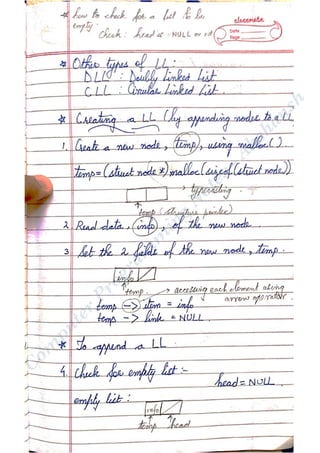 * how to check for a list to be
empty:
check: head is = NULL or not
classmate
Date
Page
* Other types of LL:
DLL : Doubly Linked List
CLL : Circular Linked List.
* Creating a LL (by appending nodes to a LL
1. Create a new node, temp, using malloc().
temp = (struct node *) malloc (sizeof (struct node))
→ typecasting.
temp (structure pointer)
2. Read data, info, of the new node.
3. Set the 2 fields of the new node, temp.
info
temp. → accessing each element using
arrow operator.
temp -> item = info
temp -> link = NULL.
* To append a LL
4. Check for empty list :-
head = NULL.
empty list :
info
temp head